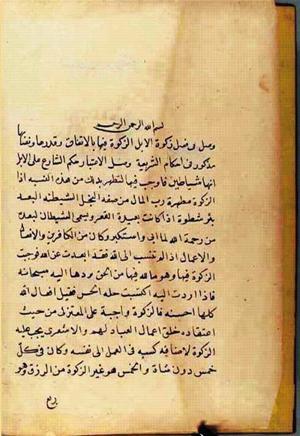 بسم الله الرحمن الرحيم
وصل في فصل زكوة الابل الزكوة فيها بالاتفاق وقدرها ونصابها
مذكور في احكام الشريعة وصل الاعتبار حكم الشارع على الابل
انها شياطين فاوجب فيها الزكوة لتطهر بذلك من هذه النسبة اذ
الزكوة مطهرة رب المال من صفة البخل الشيطنة البعد
بئر شطون اذا كانت بعيدة القعر وسمي الشيطان لبعده
من رحمة الله لما ابى واستكبر وكان من الكافرين والافعال
والاعمال اذا لم تنسب الى الله فقد ابعدت عن الله فوجبت
الزكوة فيها وهو ما لله فيها من الحق بردها اليه سبحانه
فاذا ردت اليه اكتسبت حلة الحسن فقيل افعال الله
كلها حسنة فالزكوة واجبة على المعتزلي من حيث
اعتقاده خلق اعمال العباد لهم والاشعري يجب عليه
الزكوة لاضافة كسبه في العمل الى نفسه وكان في كل
خمس ذود شاة والخمس هو عين الزكوة من الورق هو
ربع